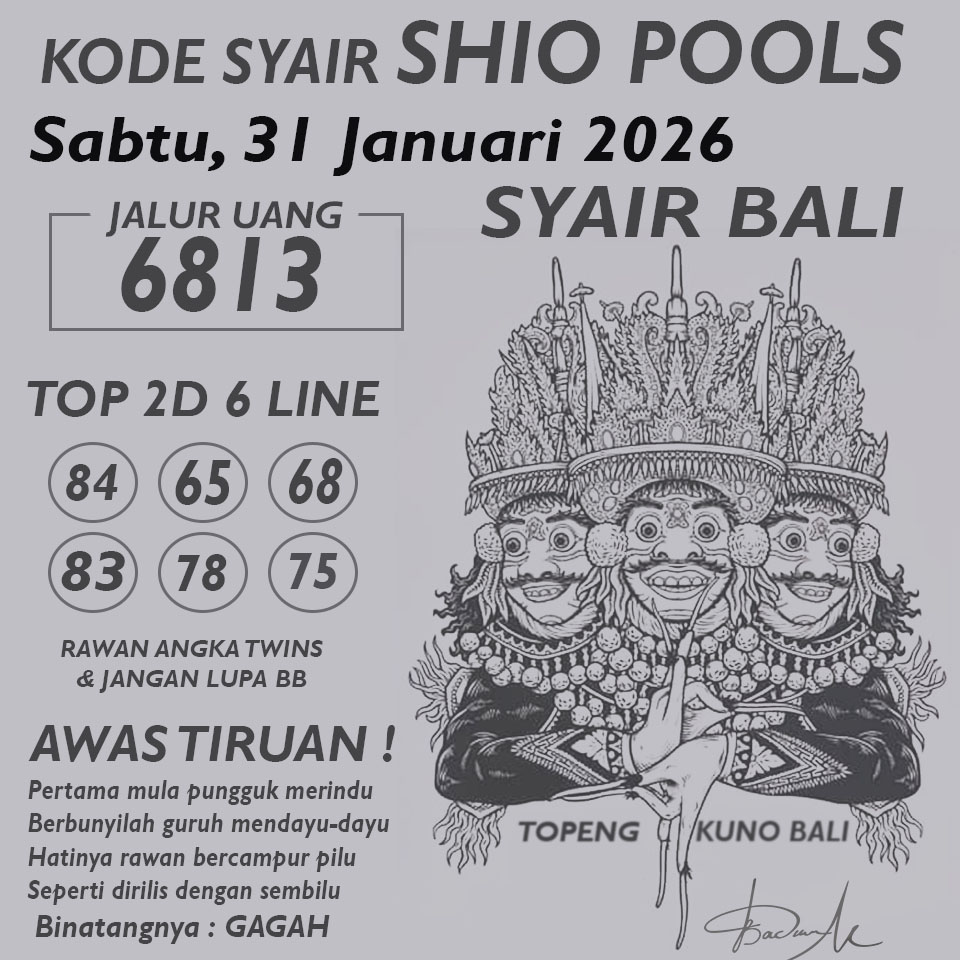 KODE SYAIR SHIO POOLS
Sabtu, 31 Januari 2026
SYAIR BALI
JALUR UANG
6813
TOP 2D 6 LINE
84 65 68
83 78 75
RAWAN ANGKA TWINS
& JANGAN LUPA BB
AWAS TIRUAN !
Pertama mula pungguk merindu
Berbunyilah guruh mendayu-dayu
Hatinya rawan bercampur pilu
Seperti dirilis dengan sembilu
Binatangnya : GAGAH
TOPENG KUNO BALI